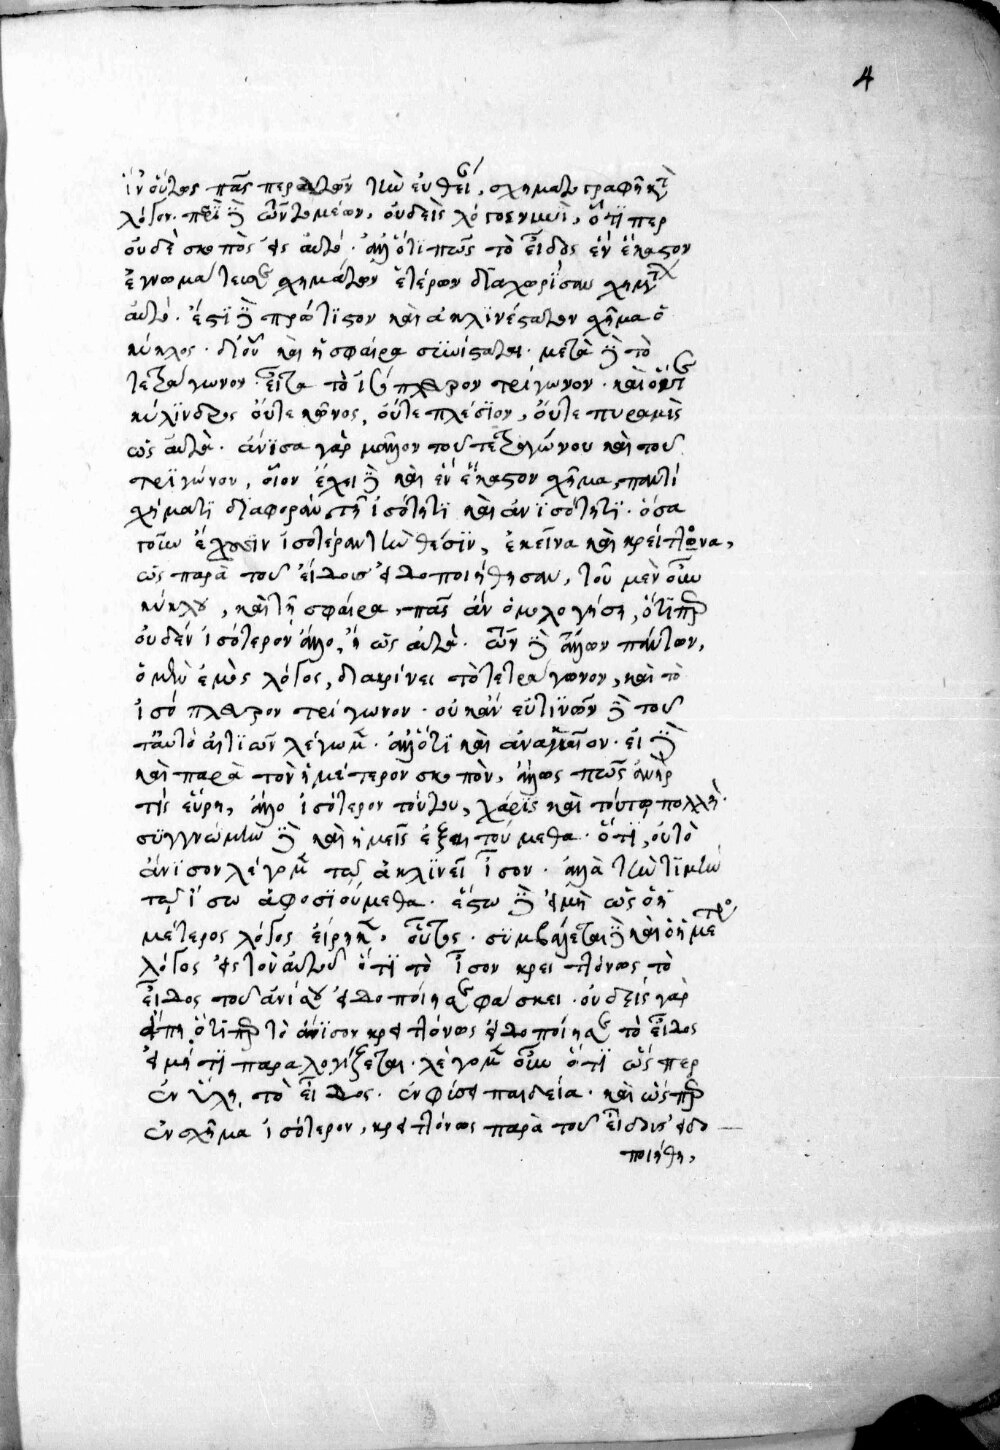 4
ἱν οὕτως πᾶς περατῶν τὴν εὐθεῖ, σχηματογραφῆ κτ
λόγον. περὶ δὲ ὧν τομέων, οὐδεὶς λόγος ἐνμοὶ, ὅτι περ
οὐδὲ σκοπὸς εἰς αὐτό. ἀλλ' ὅτι πῶς τὸ εἶδος ἓν ἕκαστον
σχημάτων ἑτέρων διαχωρίσαν σχημ
αὐτό. ἔστι δὲ πρώτιστον καὶ ἀκλινέστατον σχῆμα ὁ
κύκλος. διοῦ καὶ ἡ σφαίρα συνίσταται. μετὰ δὲ τὸ
τετράγωνον. εἶτα τὸ ἰσόπλευρον τρίγωνον. καὶ οὔτε
κύλινδρος οὔτε κῶνος, οὔτε πλέσιον, οὔτε πυραμὶς
ὡς αὐτὰ. ἄνισα γὰρ μᾶλλον τοῦ τετραγώνου καὶ τοῦ
τριγώνου, οἷον ἔχει δὲ καὶ ἓν ἕκαστον σχῆμα παντὶ
σχήματι διαφορὰν τῇ ἰσότητι καὶ ἀνισότητι. ὅσα
τοίνυν ἔχουσιν ἰσοτέραν τὴν θέσιν, ἐκεῖνα καὶ κρείττονα,
ὡς παρὰ τοῦ εἴδους εἰδοποιήθησαν, τοῦ μὲν οὖν
κύκλου, καὶ τῇ σφαίρα, πᾶς ἂν ὁμολογήση, ὅτιπερ
οὐδὲν ἰσότερον ἄλλο, ἢ ὡς αὐτὰ. ὧν δὲ ἄλλων πάντων,
ὁ μὲν ἐμὸς λόγος, διακρίνει τὸ τετράγωνον, καὶ τὸ
ἰσόπλευρον τρίγωνον. οὐκ ἂν εὔτινῶν δὲ τοῦ
ταυτὸ αἰτιῶν λέγωμεν. ἀλλ' ὅτι καὶ ἀναγκαῖον. εἰ δὲ
καὶ παρὰ τὸν ἡμέτερον σκοπὸν, ἄλλως πως ἀνὴρ
τὶς εὕρη, ἄλλο ἰσότερον τούτου, χάρις καὶ τούτῳ πολλὴ.
συγγνώμην δὲ καὶ ἡμεῖς ἐξαιτούμεθα. ὅτι, οὐ τὸ
ἄνισον λέγομεν ταῖς ἀκλινεῖ ἴσον. ἀλλὰ τὴν τιμὴν
τῷ ἴσῳ ἀφοσιούμεθα. ἔστω δὲ ἐμὴ ὡς ὁ ἡ
μέτερος λόγος εἴρηκεν. οὕτως. συμβάλεται δὲ καὶ ὁ ἡμέτερος
λόγος εἰς τὸν αὐτοῦ ὅτι τὸ ἴσον κρειττόνως τὸ
εἶδος τοῦ ἀνίσου εἰδοποίησε φάσκει. οὐδεὶς γὰρ
εἴπη, ὅτιπερ τὸ ἄνισον κρειττόνως εἰδοποίησε τὸ εἶδος
εἰ μή τι παραλογίζεται. λέγομεν οὖν ὅτι ὥσπερ
ἐν ὕλη, τὸ εἶδος. ἐν φύσει παιδεία. καὶ ὥσπερ
ἐν σχῆμα ἰσότερον, κρειττόνως παρὰ τοῦ εἴδους εἰδο
ποιήθη,